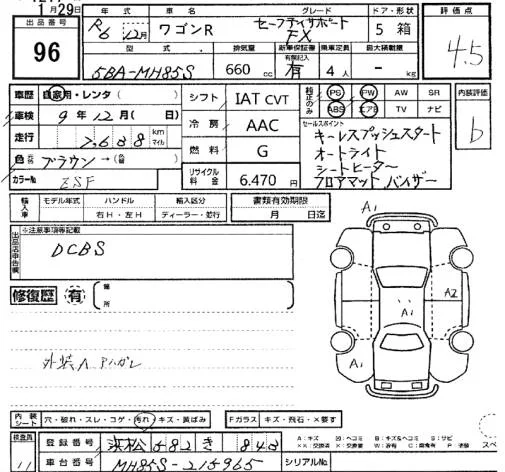 月29日
出品番号
96
年式 車名 グレード ドア・形状
R6 12月 ワゴンR セーフティサポート FX 5 箱
型式 排気量 新車保証書 乗車定員 最大積載量
有無記入
5BA-MH85S 660 cc 有 4人 - kg
評価点
4.5
内装評価
b
車歴 自家用・レンタ( )
車検 9年12月( 日)
走行 7,638 km マイル
色 ブラウン → ( )
カラーNo ZSF
シフト IAT CVT
冷房 AAC
燃料 G
リサイクル料金 6.470 円
純正のみ
PS PW AW SR
ABS エアB TV ナビ
セールスポイント
キーレスプッシュスタート
オートライト
シートヒーター
フロアマット バイザー
輸入車 モデル年式 ハンドル 輸入区分
右H・左H ディーラー・並行
書類有効期限
月 日迄
出品店申告欄
※注意事項等記載
DCBS
修復歴 有 ( 箇所 )
外装 A
A1
A2
A1
A1
A1
内装シート 穴・破れ・スレ・コゲ・汚れ・キズ・黄ばみ
Fガラス キズ・飛石・×要す
検査員 11
登録番号 浜松 582 き 843
車台番号 MH85S-215965
シリアルNo
A:キズ
B:キズ&ヘコミ
S:サビ